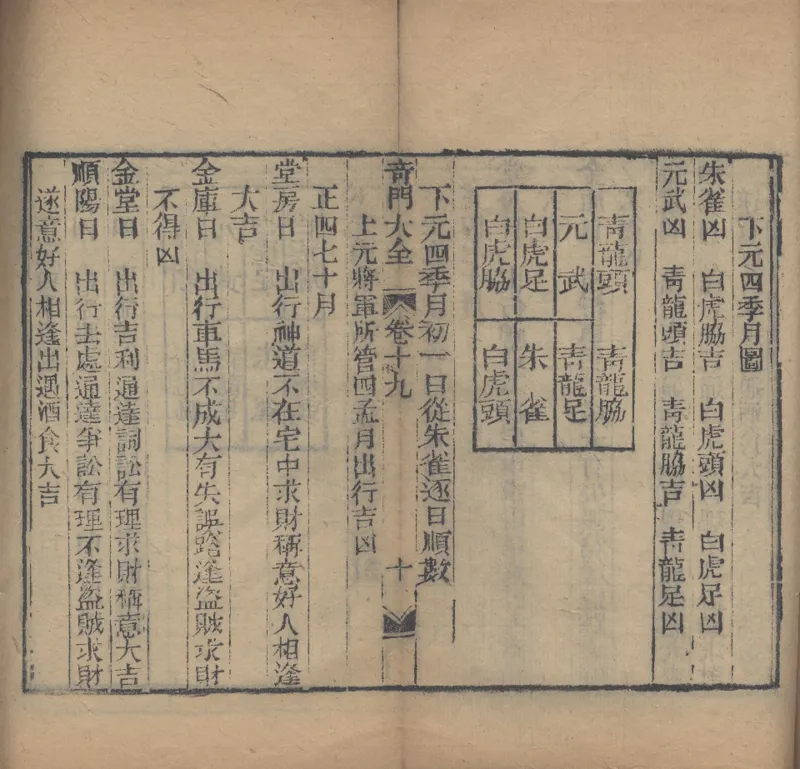 下元四季月圖
朱雀凶　白虎脇吉　白虎頭凶　白虎足凶
元武凶　青龍頭吉　青龍脇吉　青龍足凶
青龍頭　青龍脇
元武　青龍足
白虎足　朱雀
白虎脇　白虎頭
下元四季月初一日從朱雀逐日順數
奇門大全　卷十九　十
上元將軍所管四孟月出行吉凶
正四七十月
堂房日　出行神道不在宅中求財稱意好人相逢
大吉
金庫日　出行車馬不成大有失誤路逢盜賊求財
不得凶
金堂日　出行吉利通達詞訟有理求財稱意大吉
順陽日　出行去處通達爭訟有理不逢盜賊求財
遂意好人相逢出遇酒食大吉